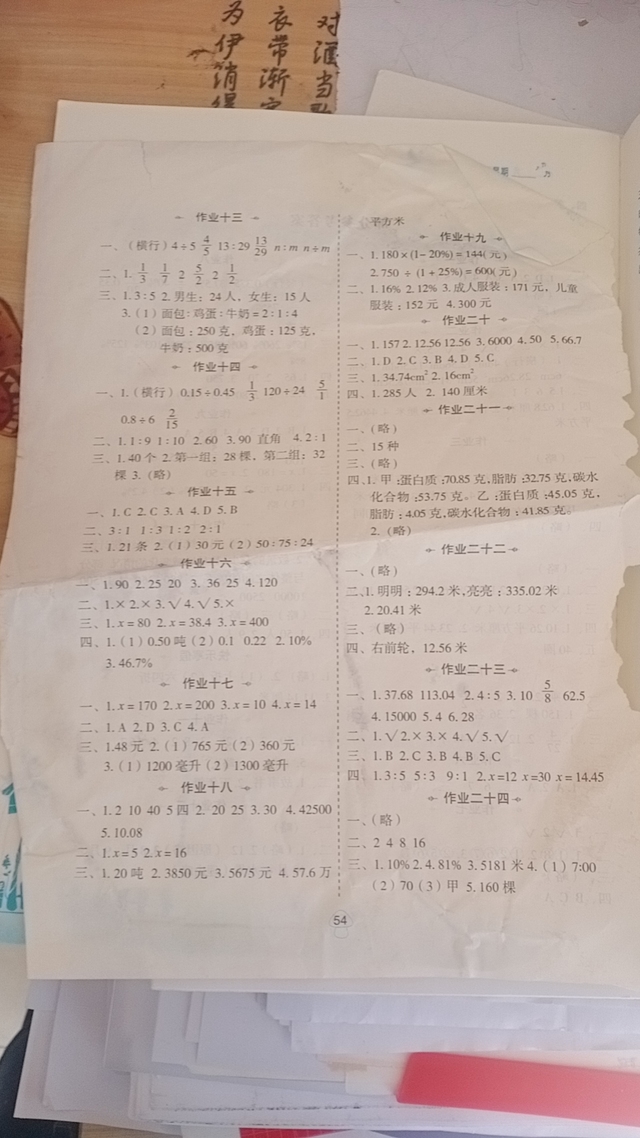 为伊消得
衣带渐宽
对酒当歌
作业十三
一、(横行)4÷5 4/5 13:29 13/29 n:m n÷m
二、1. 1/3 1/7 2 5/2 2 1/2
三、1.3:5 2.男生:24人,女生:15人
3.(1)面包:鸡蛋:牛奶=2:1:4
(2)面包:250克,鸡蛋:125克,
牛奶:500克
作业十四
一、1.(横行)0.15÷0.45 1/3 120÷24 5/1
0.8÷6 2/15
二、1.1:9 1:10 2.60 3.90 直角 4.2:1
三、1.40个 2.第一组:28棵,第二组:32
棵 3.(略)
作业十五
一、1.C 2.C 3.A 4.D 5.B
二、3:1 1:3 1:2 2:1
三、1.21条 2.(1)30元(2)50:75:24
作业十六
一、1.90 2.25 20 3. 36 25 4.120
二、1.× 2.× 3.√ 4.√ 5.×
三、1.x=80 2.x=38.4 3.x=400
四、1.(1)0.50吨(2)0.1 0.22 2.10%
3.46.7%
作业十七
一、1.x=170 2.x=200 3.x=10 4.x=14
二、1.A 2.D 3.C 4.A
三、1.48元 2.(1)765元(2)360元
3.(1)1200毫升(2)1300毫升
作业十八
一、1.2 10 40 5 四 2. 20 25 3.30 4.42500
5.10.08
二、1.x=5 2.x=16
三、1.20吨 2.3850元 3.5675元 4.57.6万
平方米
作业十九
一、1.180×(1-20%)=144(元)
2.750÷(1+25%)=600(元)
二、1.16% 2.12% 3.成人服装:171元,儿童
服装:152元 4.300元
作业二十
一、1.157 2.12.56 12.56 3.6000 4.50 5.66.7
二、1.D 2.C 3.B 4.D 5.C
三、1.34.74cm² 2.16cm²
四、1.285人 2. 140厘米
作业二十一
一、(略)
二、15种
三、(略)
四、1.甲:蛋白质:70.85克,脂肪:32.75克,碳水
化合物:53.75克。乙:蛋白质:45.05克,
脂肪:4.05克,碳水化合物:41.85克。
2.(略)
作业二十二
一、(略)
二、1.明明:294.2米,亮亮:335.02米
2.20.41米
三、(略)
四、右前轮,12.56米
作业二十三
一、1.37.68 113.04 2.4:5 3.10 5/8 62.5
4.15000 5.4 6.28
二、1.√ 2.× 3.× 4.√ 5.√
三、1.B 2.C 3.B 4.B 5.C
四、1.3:5 5:3 9:1 2.x=12 x=30 x=14.45
作业二十四
一、(略)
二、2 4 8 16
三、1.10% 2.4.81% 3.5181米 4.(1)7:00
(2)70(3)甲 5.160棵
54